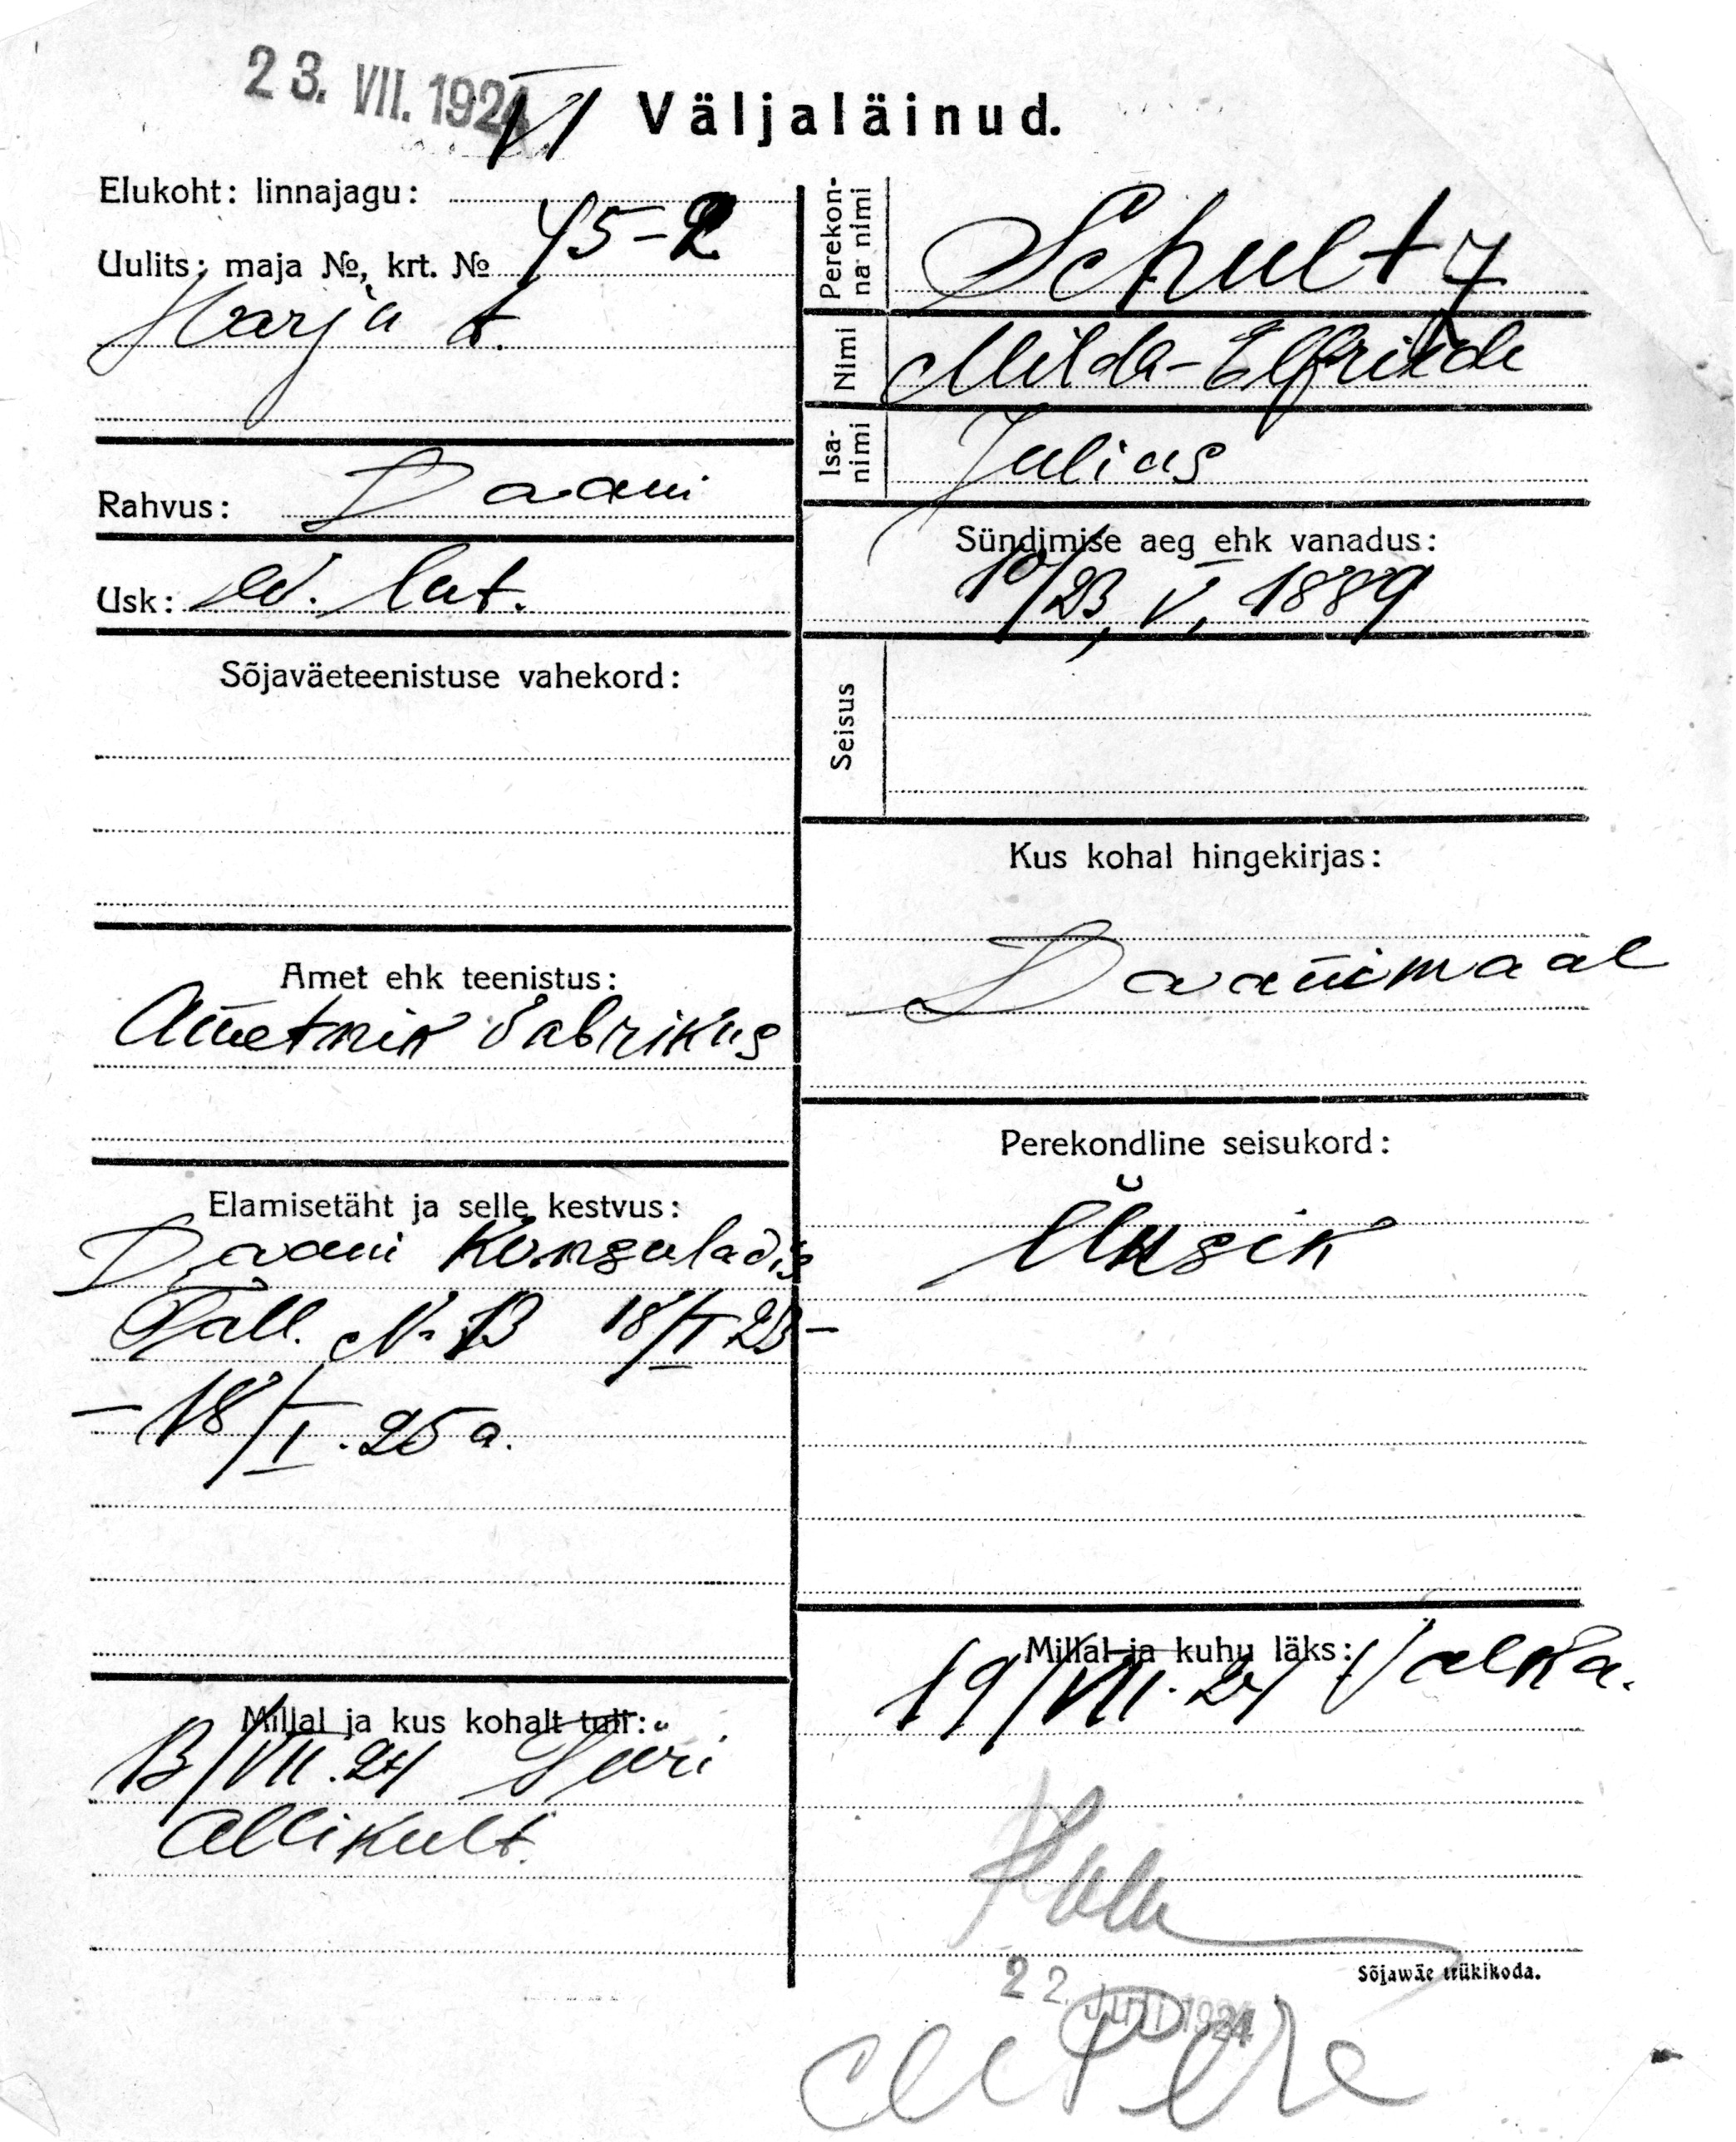 23. VII. 1924
Väljaläinud.
Elukoht: linnajagu: VI
Uulits, maja №, krt. № 45-2
Harju t.
Rahvus: Daani
Usk: ev. lut.
Sõjaväeteenistuse vahekord:
Amet ehk teenistus:
Ametnik vabrikus
Elamisetäht ja selle kestvus:
Daani Konsuladis
Tall. N. 13 18/I 23 –
– 18/I. 25 a.
Millal ja kus kohalt tuli:
13/VII. 24 Suri
allikult.
Perekonna nimi
Schultz
Nimi
Milda-Elfriede
Isanimi
Julius
Sündimise aeg ehk vanadus:
10/23, V, 1889
Seisus
Kus kohal hingekirjas:
Daanimaal
Perekondline seisukord:
Üksik
Millal ja kuhu läks:
19/VII. 24 Valka.
Sõjawäe trükikoda.
22. Juli 1924